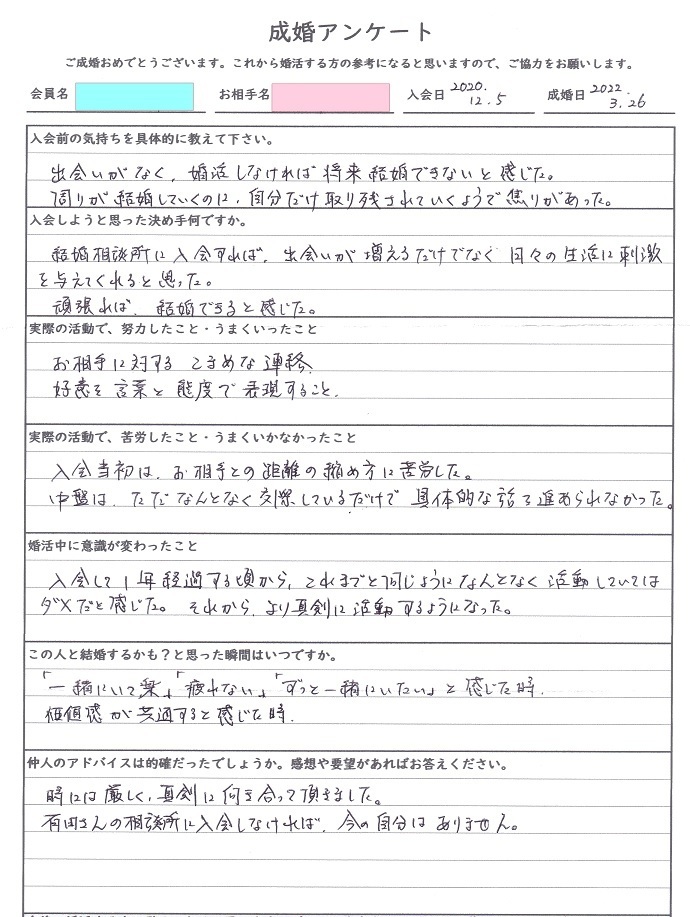 成婚アンケート
ご成婚おめでとうございます。これから婚活する方の参考になると思いますので、ご協力をお願いします。
会員名 お相手名 入会日 2020. 12.5 成婚日 2022. 3.26
入会前の気持ちを具体的に教えて下さい。
出会いがなく、婚活しなければ将来結婚できないと感じた。
周りが結婚していくのに、自分だけ取り残されていくようで焦りがあった。
入会しようと思った決め手何ですか。
結婚相談所に入会すれば、出会いが増えるだけでなく日々の生活に刺激
を与えてくれると思った。
頑張れば、結婚できると感じた。
実際の活動で、努力したこと・うまくいったこと
お相手に対するこまめな連絡
好意を言葉と態度で表現すること。
実際の活動で、苦労したこと・うまくいかなかったこと
入会当初は、お相手との距離の縮め方に苦労した。
中盤は、ただなんとなく交際しているだけで具体的な話を進められなかった。
婚活中に意識が変わったこと
入会して1年経過する頃から、これまでと同じようになんとなく活動していては
ダメだと感じた。それから、より真剣に活動するようになった。
この人と結婚するかも？と思った瞬間はいつですか。
「一緒にいて楽」「疲れない」「ずっと一緒にいたい」と感じた時。
価値感が共通すると感じた時。
仲人のアドバイスは的確だったでしょうか。感想や要望があればお答えください。
時には厳しく、真剣に向き合って頂きました。
有田さんの相談所に入会しなければ、今の自分はありません。